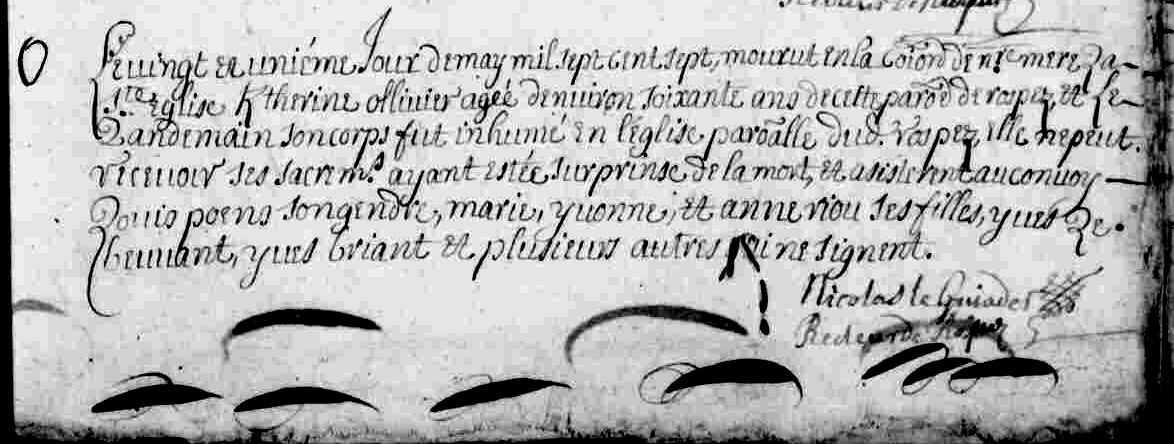 Le vingt et uniéme Jour de may mil sept cent sept, mourut en la coion de nre mere La
Ste Eglise Ktherine ollivier agéé denuiron soixante ans de cette parõe de rospez, et Le
Landemain son corps fut inhumé en l'église paroālle dud. rospez, elle ne peut
recevoir ses sacremts ayant estée surprinse de la mort, et asisterent au convoy
Louis poens son gendre, marie, yvonne, et anne riou ses filles, yves Le
yves briant et plusieurs autres qui ne signent.
Nicolas le Guiader
Recteur de Rospez